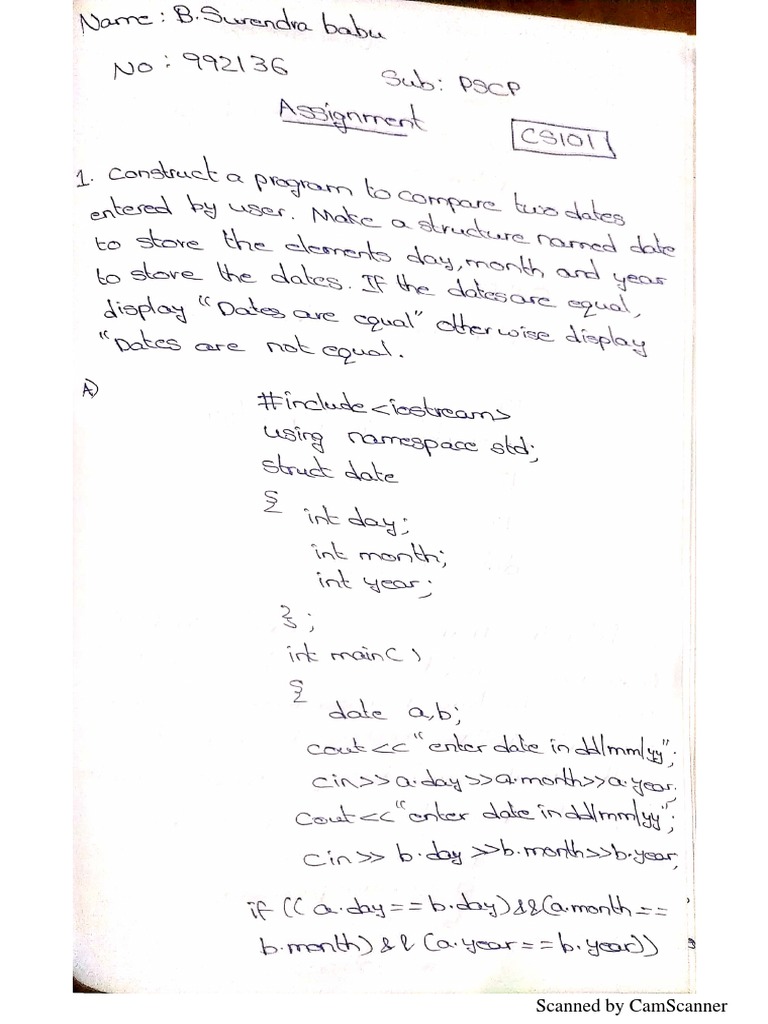 Name: B. Surendra babu
No: 992136
Sub: PSCP
Assignment
CS101
1. Construct a program to compare two dates
entered by user. Make a structure named date
to store the elements day, month and year
to store the dates. If the dates are equal,
display "Dates are equal" otherwise display
"Dates are not equal.
A)
#include<iostream>
using namespace std;
struct date
{
int day;
int month;
int year;
};
int main()
{
date a,b;
cout<<"enter date in dd/mm/yy";
cin>>a.day>>a.month>>a.year;
cout<<"enter date in dd/mm/yy";
cin>> b.day >>b.month>>b.year;
if ((a.day==b.day)&&(a.month==
b.month)&&(a.year==b.year))
Scanned by CamScanner